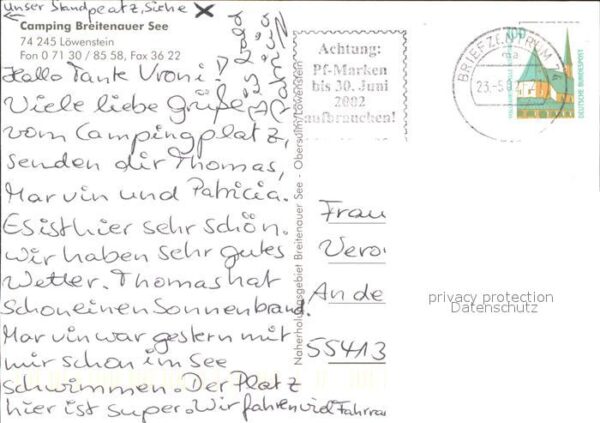 unser Standpeatz, Siehe X
Camping Breitenauer See
74 245 Löwenstein
Fon 0 71 30 / 85 58, Fax 36 22
Hallo Tante Vroni!
Viele liebe Grüße
vom Campingplatz,
senden dir Thomas,
Marvin und Patricia.
Es ist hier sehr schön.
Wir haben sehr gutes
Wetter. Thomas hat
schon einen Sonnenbrand.
Marvin war gestern mit
mir schon im See
schwimmen. Der Platz
hier ist super. Wir fahren viel Fahrra
Naherholungsgebiet Breitenauer See - Obersulm/Löwenstein
Achtung:
Pf-Marken
bis 30. Juni
2002
aufbrauchen!
BRIEFZENTRUM 74
ma
23.-5.0
100
DEUTSCHE BUNDESPOST
Frau
Vero
An de
55413
privacy protection
Datenschutz